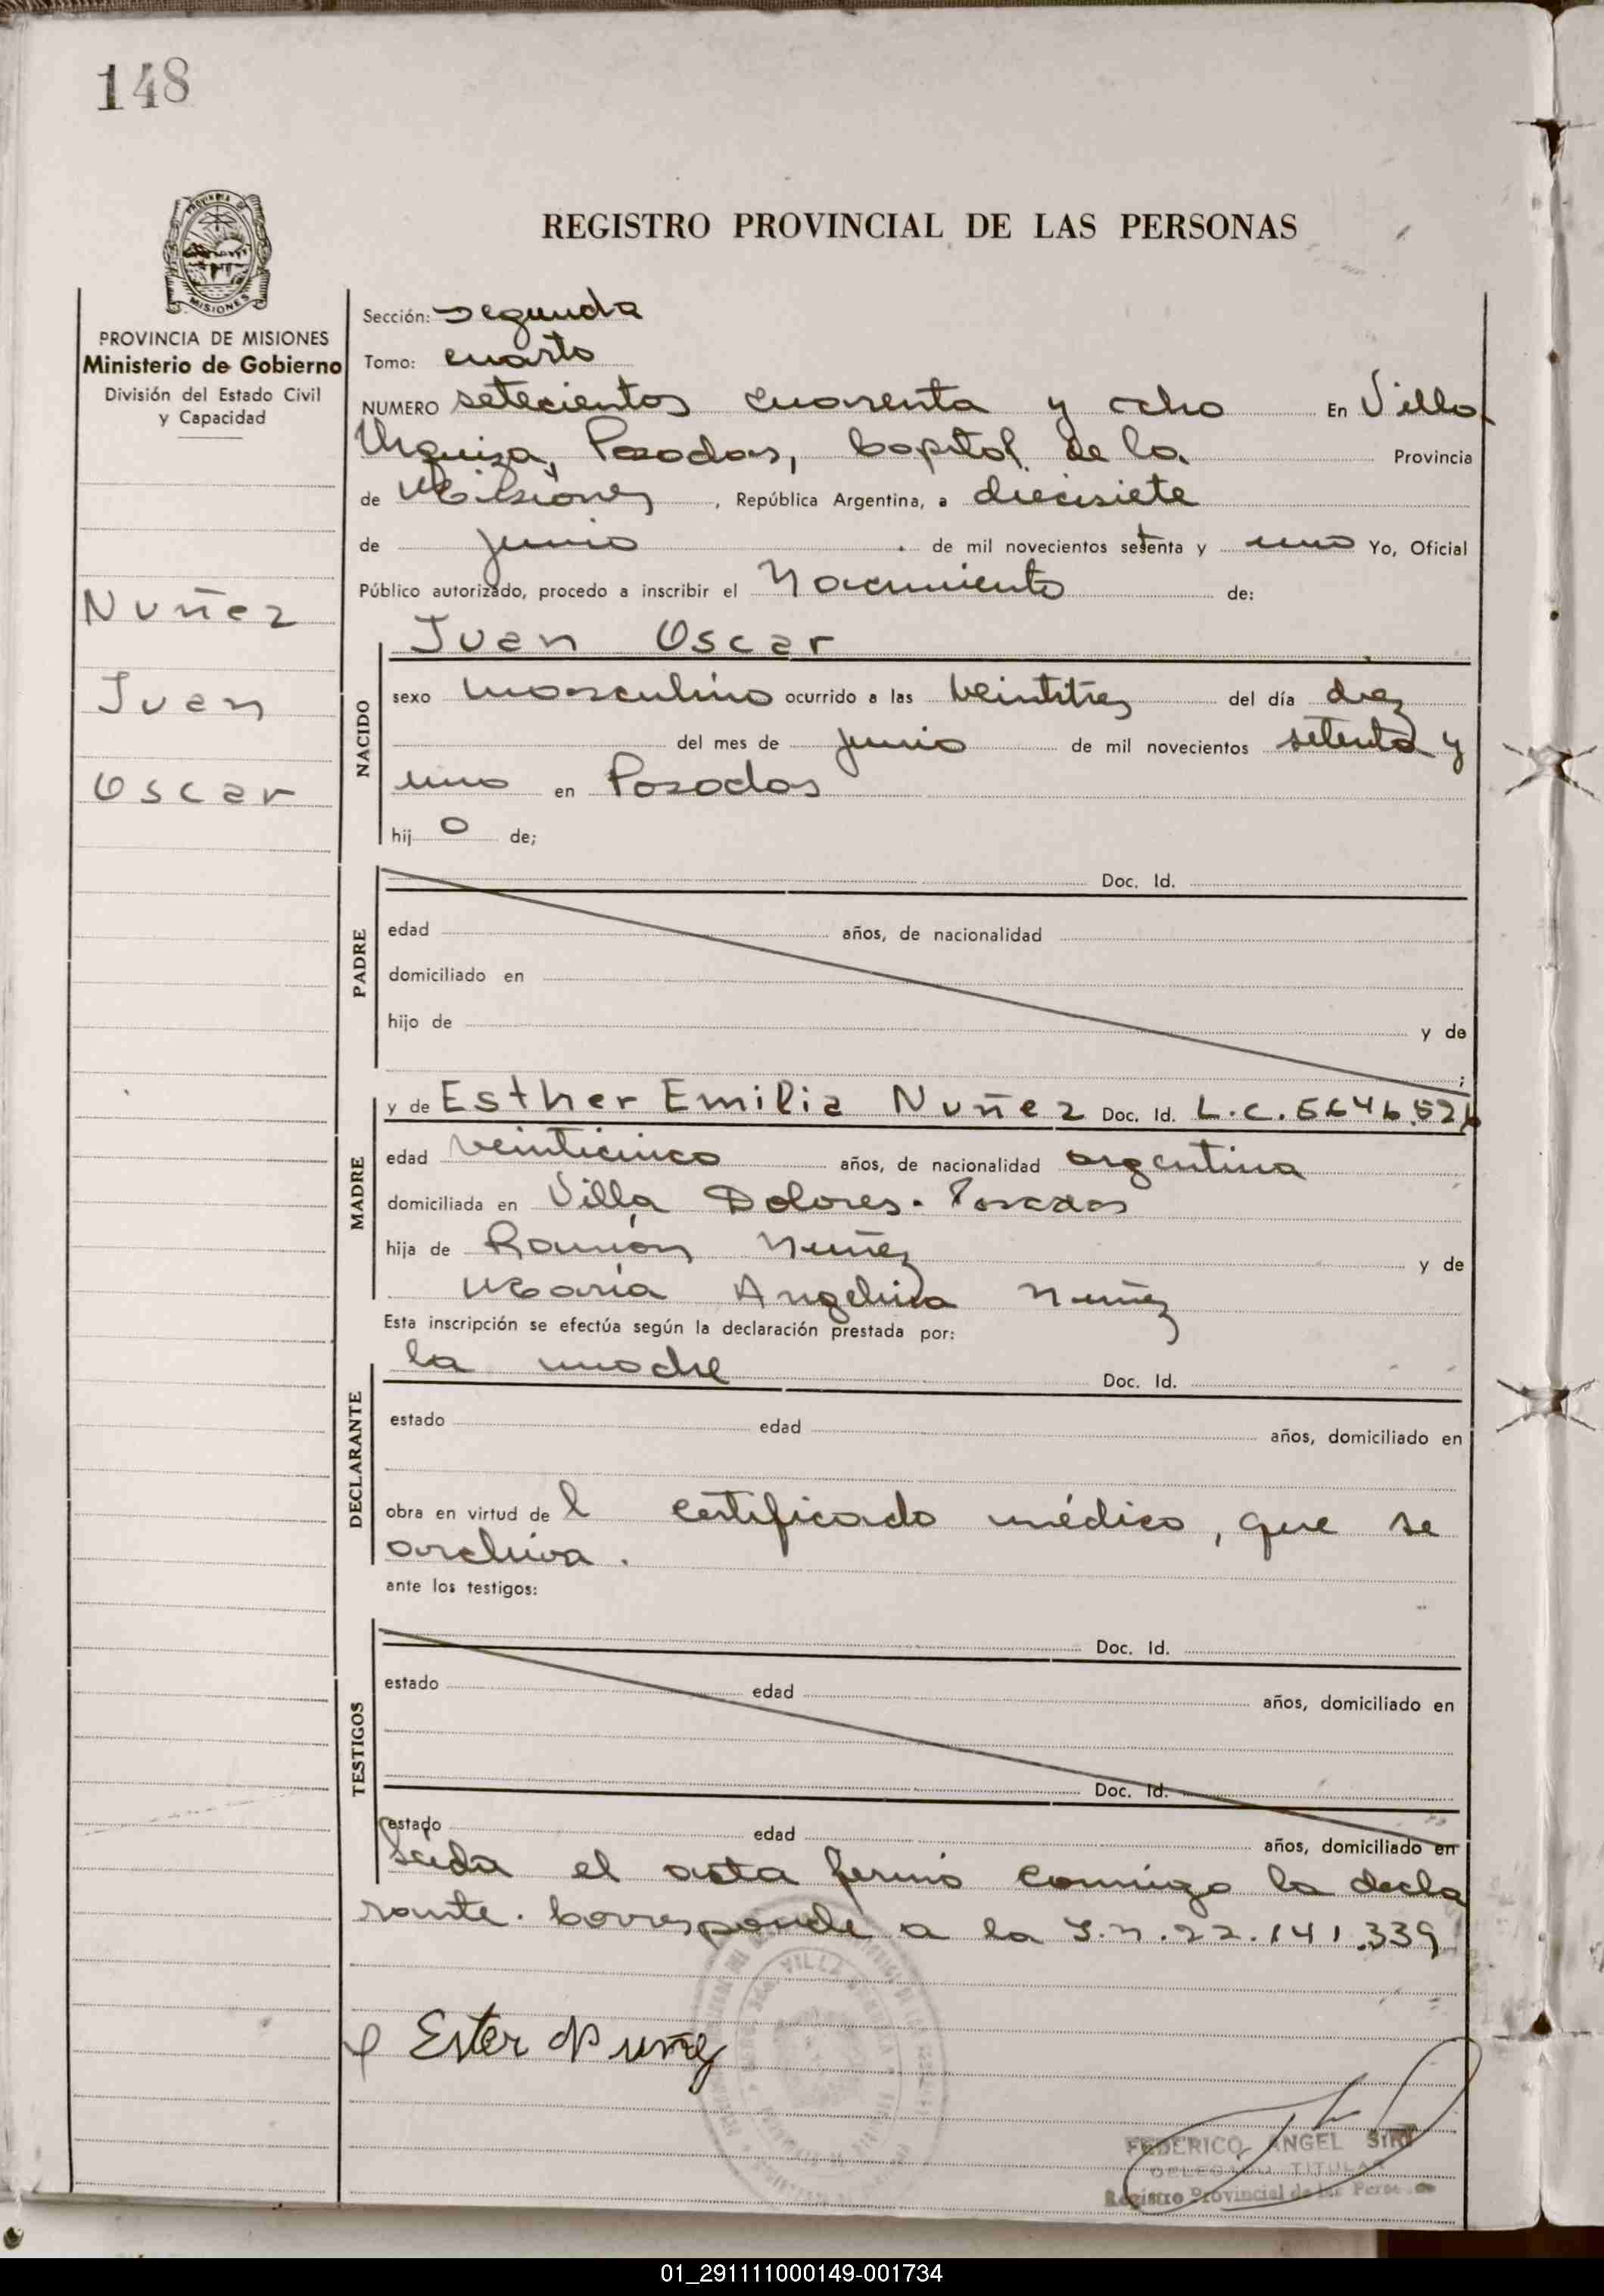 148
REGISTRO PROVINCIAL DE LAS PERSONAS
PROVINCIA DE MISIONES
Ministerio de Gobierno
División del Estado Civil
y Capacidad
Nuñez
Juan
Oscar
Sección: segunda
Tomo: cuarto
NUMERO setecientos cuarenta y ocho En Villa
Urquiza, Posadas, Capital de la Provincia
de Misiones, República Argentina, a diecisiete
de junio de mil novecientos setenta y uno Yo, Oficial
Público autorizado, procedo a inscribir el Nacimiento de:
Juan Oscar
NACIDO
sexo masculino ocurrido a las veintitres del día diez
del mes de junio de mil novecientos setenta y
uno en Posadas
hij o de;
PADRE
Doc. Id.
edad años, de nacionalidad
domiciliado en
hijo de y de
;
MADRE
y de Esther Emilia Nuñez Doc. Id. L.C. 5646.526
edad veinticinco años, de nacionalidad argentina
domiciliada en Villa Dolores. Posadas
hija de Ramón Nuñez y de
María Angelina Nuñez
Esta inscripción se efectúa según la declaración prestada por:
DECLARANTE
la madre Doc. Id.
estado edad años, domiciliado en
obra en virtud de l certificado médico, que se
archiva.
ante los testigos:
TESTIGOS
Doc. Id.
estado edad años, domiciliado en
Doc. Id.
estado edad años, domiciliado en
Leida el acta firmó conmigo la decla
rante. Corresponde a la I.N. 22.141.339
Ester Nuñez
FEDERICO ANGEL
DELEGADO TITULAR
Registro Provincial de las
01_291111000149-001734